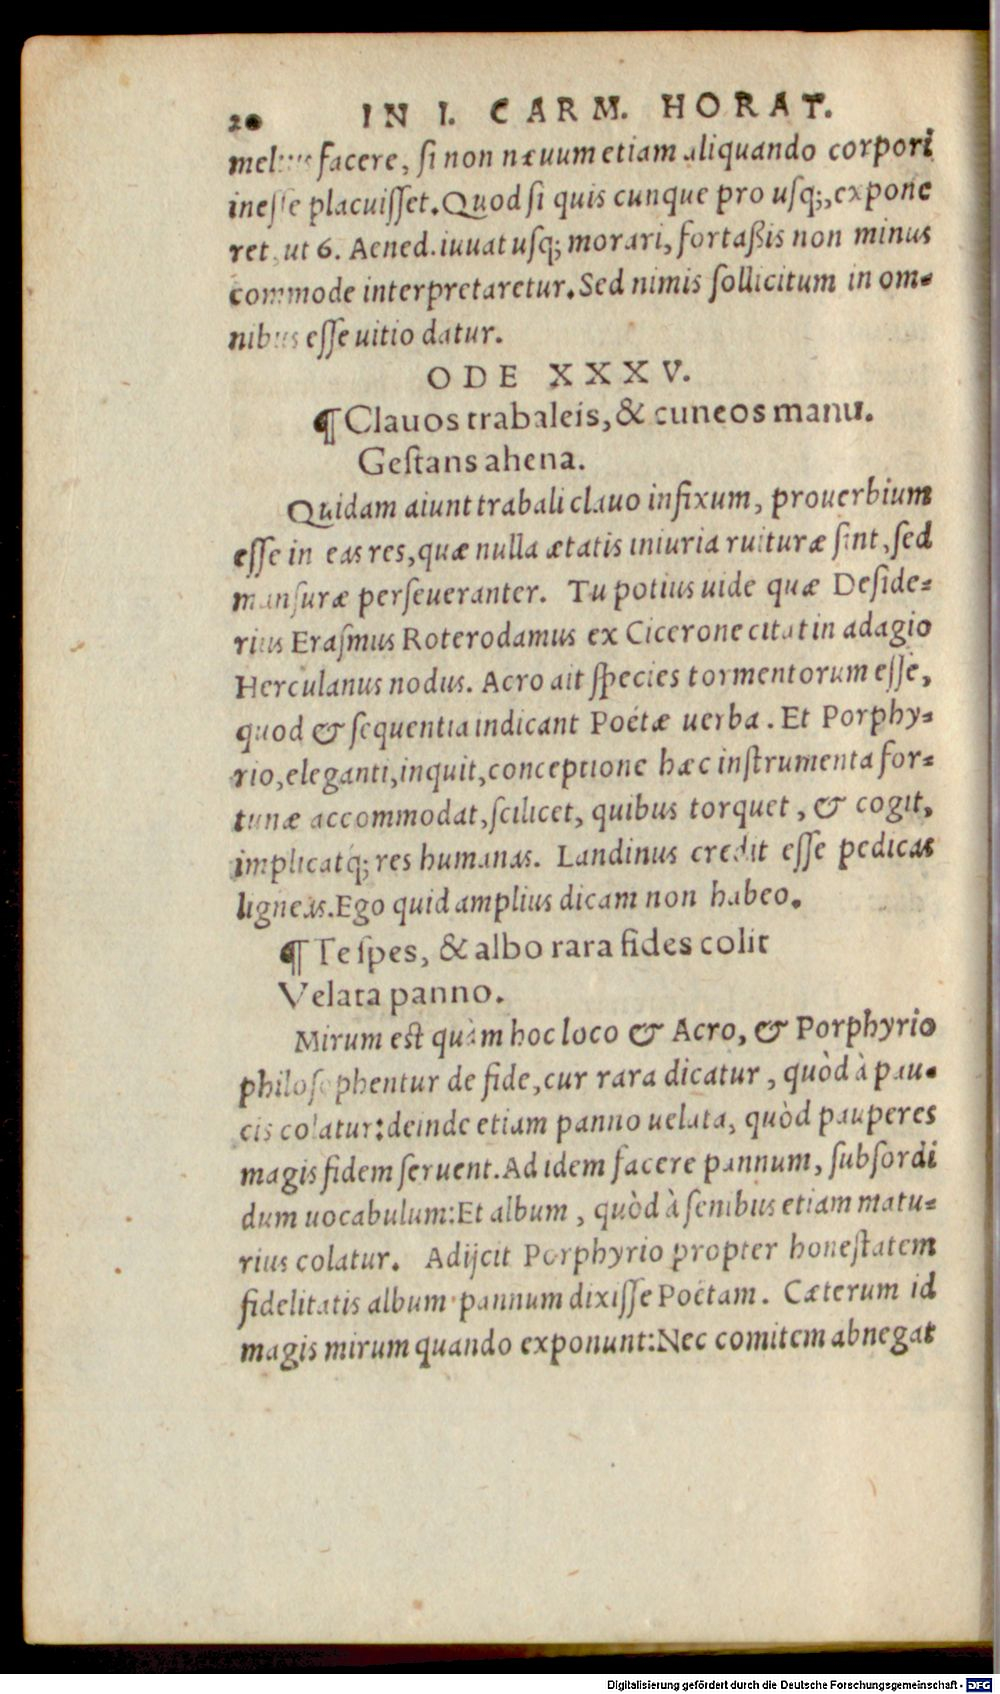 20 IN I. CARM. HORAT.
melius facere, si non næuum etiam aliquando corpori
inesse placuisset. Quod si quis cunque pro usq;, expone
ret, ut 6. Aened. iuuat usq; morari, fortaßis non minus
commode interpretaretur. Sed nimis sollicitum in om-
nibus esse uitio datur.
ODE XXXV.
¶ Clauos trabaleis, & cuneos manu.
Gestans ahena.
Quidam aiunt trabali clauo infixum, prouerbium
esse in eas res, quæ nulla ætatis iniuria ruituræ sint, sed
mansuræ perseueranter. Tu potius uide quæ Deside-
rius Erasmus Roterodamus ex Cicerone citat in adagio
Herculanus nodus. Acro ait species tormentorum esse,
quod & sequentia indicant Poëtæ uerba. Et Porphy-
rio, eleganti, inquit, conceptione hæc instrumenta for-
tunæ accommodat, scilicet, quibus torquet, & cogit,
implicatq́; res humanas. Landinus credit esse pedicas
ligneas. Ego quid amplius dicam non habeo.
¶ Te spes, & albo rara fides colit
Velata panno.
Mirum est quàm hoc loco & Acro, & Porphyrio
philosophentur de fide, cur rara dicatur, quòd à pau-
cis colatur: deinde etiam panno uelata, quòd pauperes
magis fidem seruent. Ad idem facere pannum, subsordi
dum uocabulum: Et album, quòd à senibus etiam matu-
rius colatur. Adijcit Porphyrio propter honestatem
fidelitatis album pannum dixisse Poëtam. Cæterum id
magis mirum quando exponunt: Nec comitem abnegat
Digitalisierung gefördert durch die Deutsche Forschungsgemeinschaft - DFG